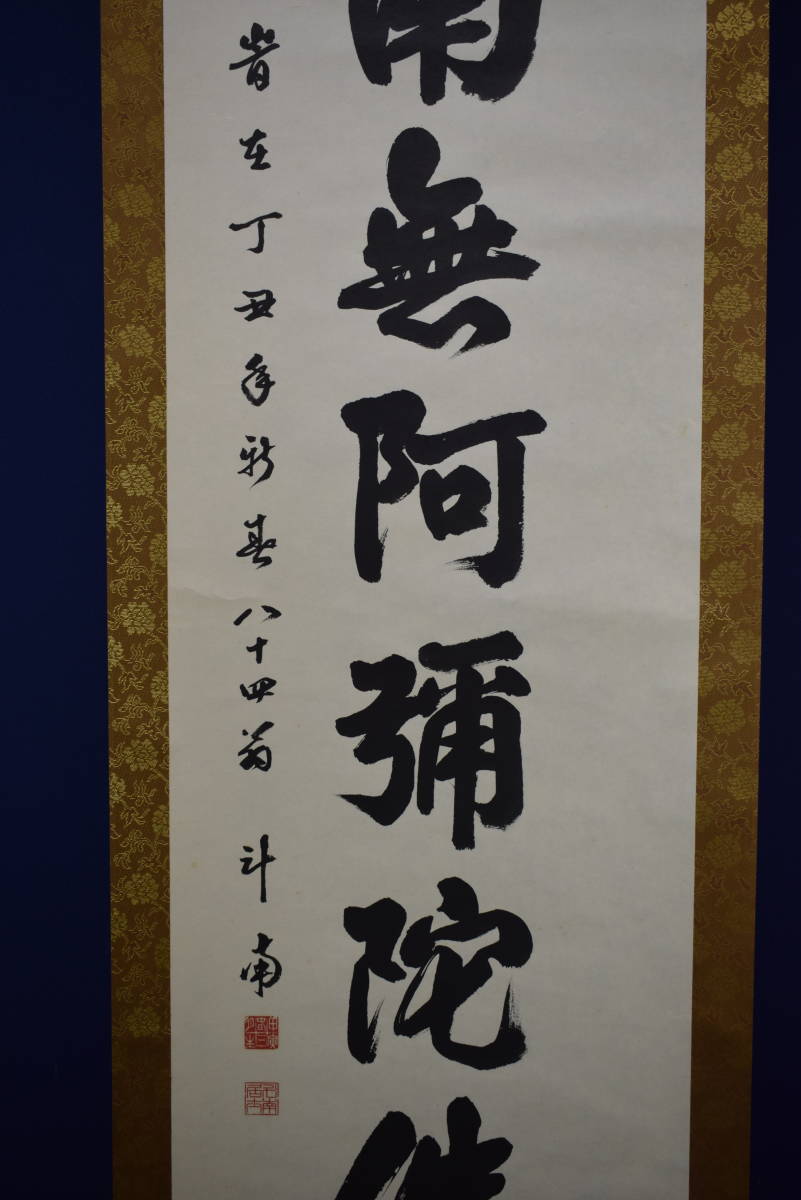 南無阿彌陀佛
時在丁丑年新春八十四翁 斗南